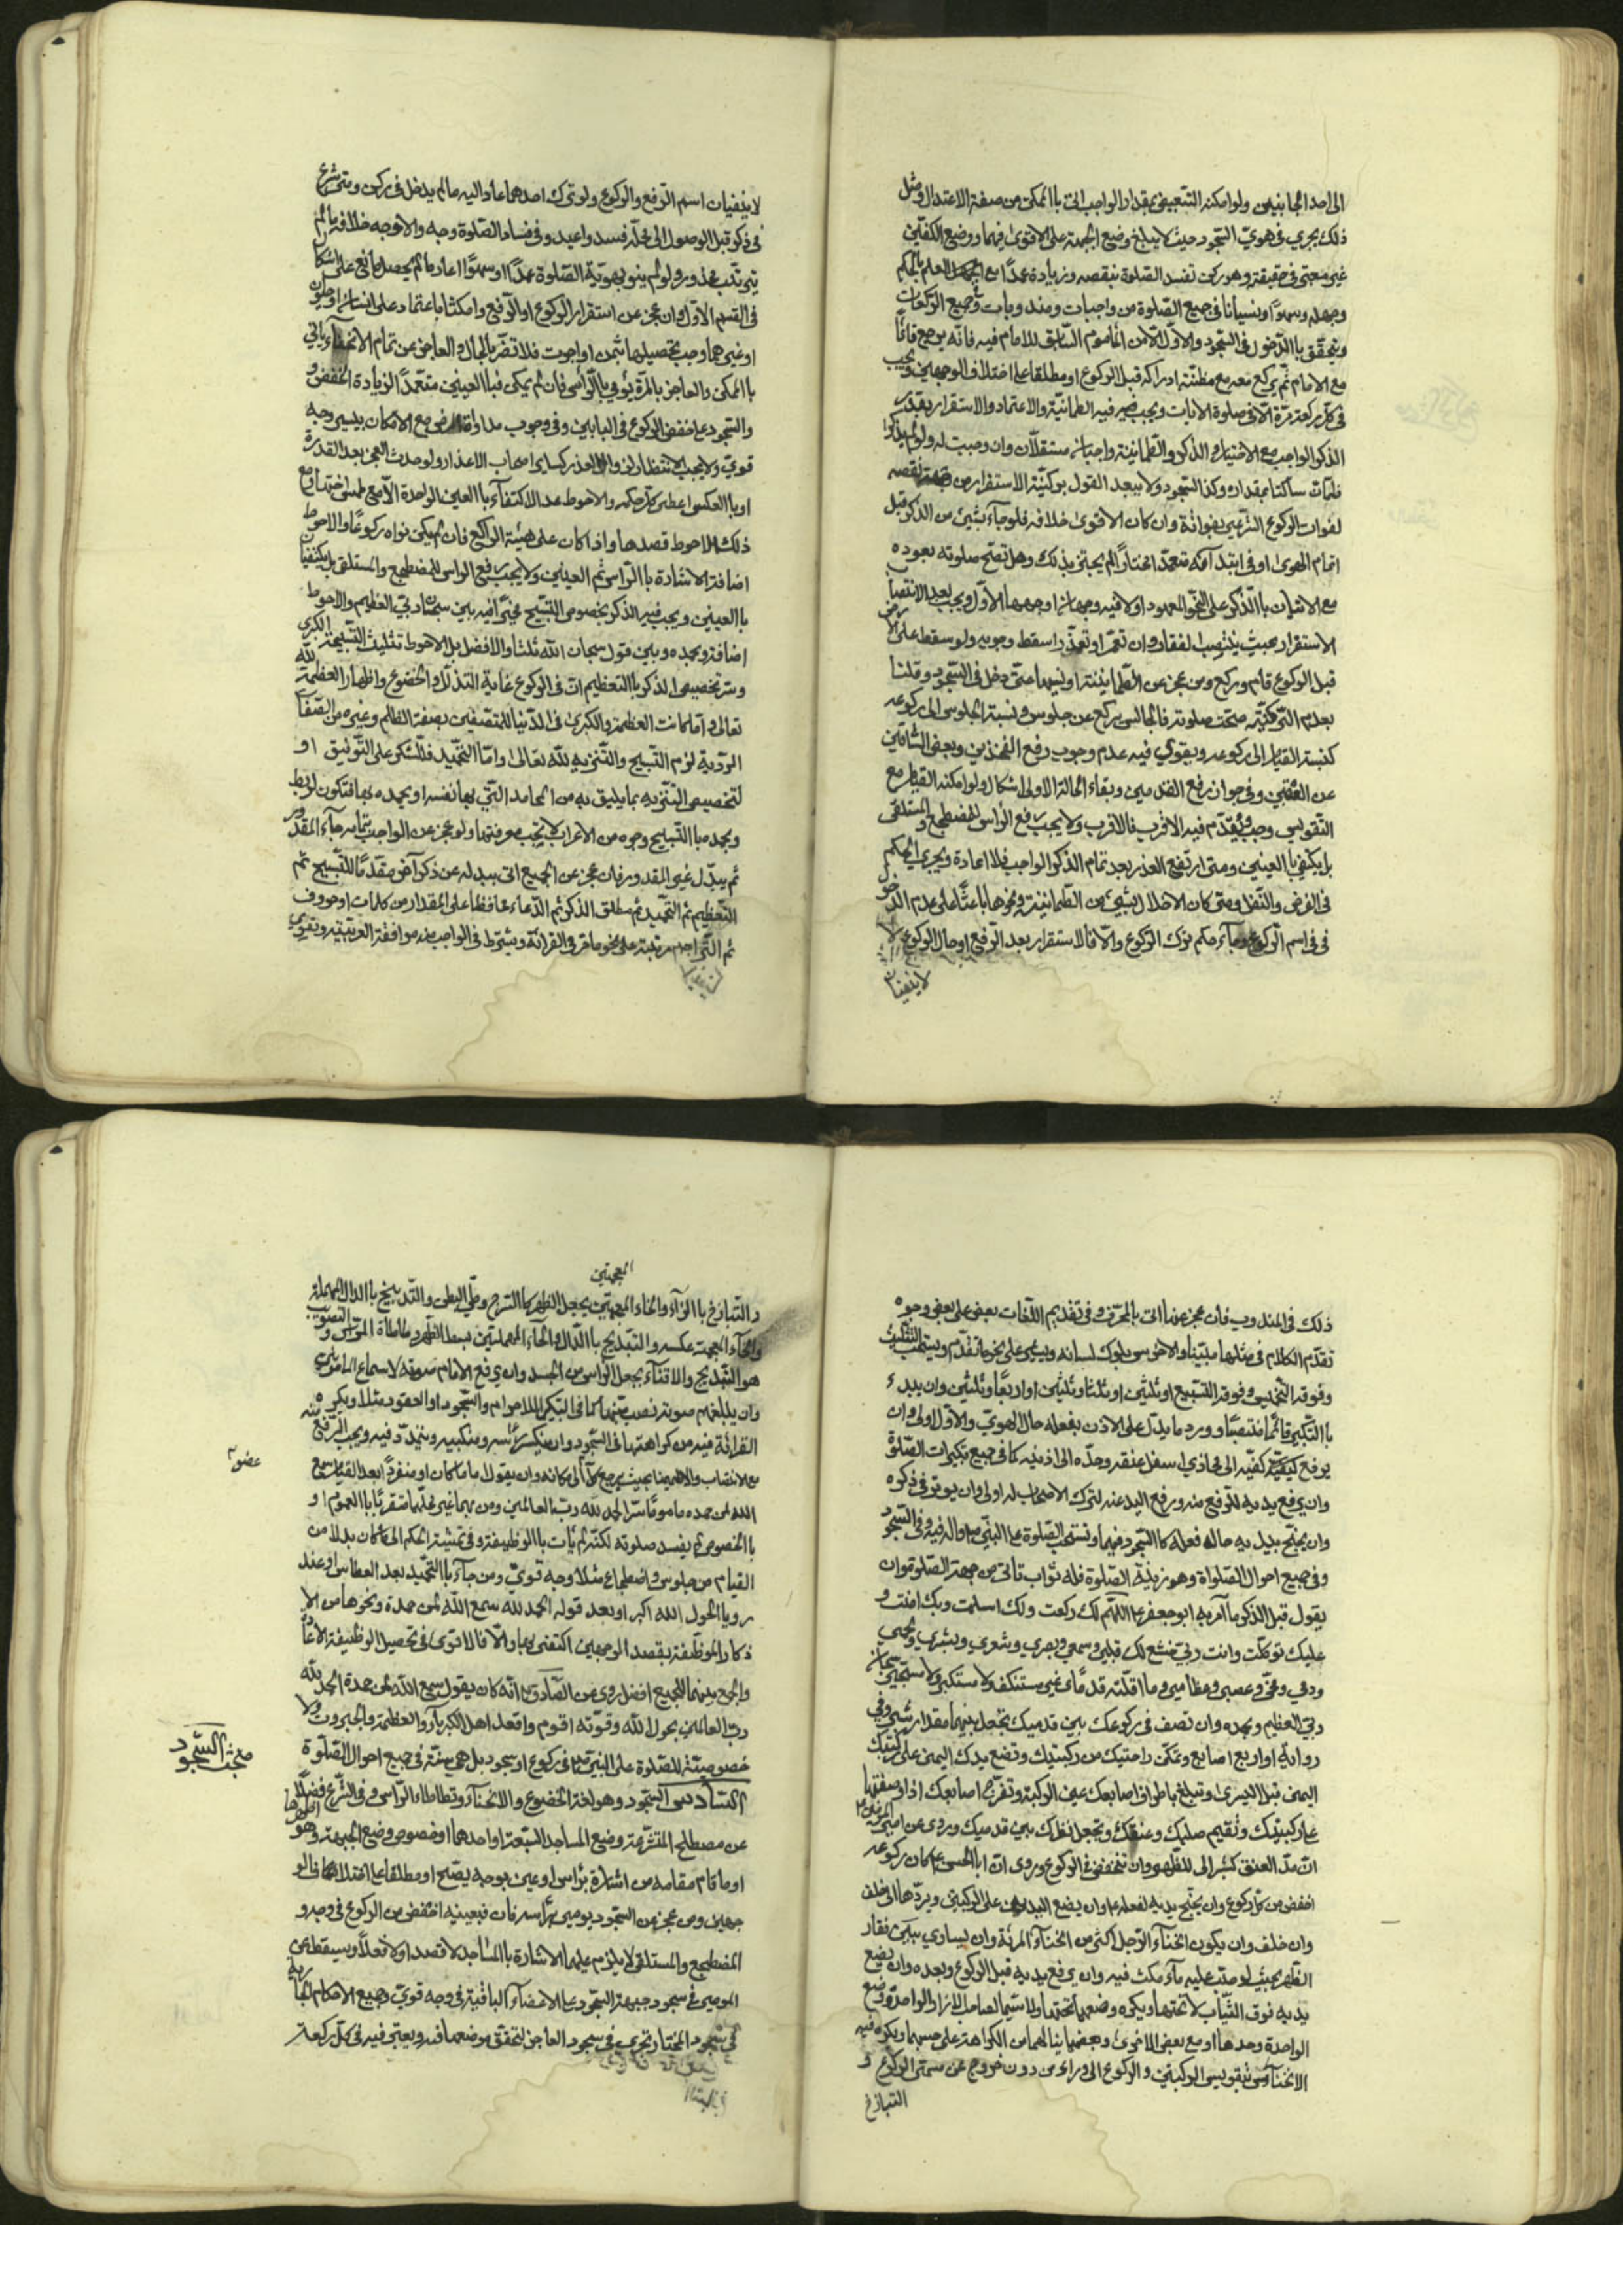 الى احد الجانبين ولو امكنه التبعيض بمقدار الواجب اتى باالممكن من صفة الاعتدال ومثل
ذلك يجري في هويّ السّجود حيث لا يبلغ وضع الجبهة على الاقوى فيهما ووضع الكفّين
غير معتبر في حقيقته وهو ركن تفسد الصّلوة بنقصه وزيادة عمدًا مع العلم باالحكم
وجهله وسهوًا ونسيانا في جميع الصّلوة من واجبات ومندوبات وجميع الركعات
ويتحقّق باالدّخول في السّجود والاوّل الّا من المأموم السّابق للامام فيه فانّه يرجع قائمًا
مع الامام ثم يركع معه مع مظنّة ادراكه قبل الركوع او مطلقا على اختلاف الوجهين ويجب
في كلّ ركعة مرّة الّا في صلوة الايات ويجب فيه الطمانيّنة والاعتماد والاستقرار بقدر
الذكر الواجب مع الاختيار والذكر والطّمانينة واجبان مستقلّان وان وجبت له ولو لم يذكر
فلمات ساكتا بمقداره وكذا السّجود ولا يبعد القول بركنيّة الاستقرار من جهة نقصه
لفوات الركوع الشّرعي بفواته وان كان الاقوى خلافه فلو جآء بشيئ من الذكر قبل
اتمام الهوى او في ابتدآئه متعمّدا مختارًا لم يجتز بذلك وهل تصح صلوته بعوده
مع الاتيان باالذّكر على النّحو المعهود اولا فيه وجهان اوجههما الاوّل ويجب بعد الانتصاب
الاستقرار بحيث ينتصب لفقاره وان تعسّر او تعذّر اسقط وجوبه ولو سقط على الارض
قبل الركوع قام وركع ومن عجز عن الطّمانينة او نسيها حتّى دخل في السّجود وقلنا
بعدم الرّكنيّة صحّت صلوته فالجالس يركع عن جلوس ونسبة الجلوس الى ركوعه
كنسبة القيام الى ركوعه ويقوي فيه عدم وجوب رفع الفخذين وبعض السّاقين
عن العقبين وفي جواز رفع القدمين وبقاء الحالة الاولى اشكال ولو امكنه القيام مع
التّقويس وجب ويقدّم فيه الاقرب فالاقرب ولا يجب رفع الرأس للمضطجع والمستلقي
بل يكتفي باالعينين ومتى ارتفع العذر بعد تمام الذكر الواجب فلا اعادة ويجري الحكم
في الفرض والنّفل ومتى كان الاخلال بشيئ من الطّمانينة ونحوها باعثًا على عدم الدّخول
في اسم الركوع جآء حكم ترك الركوع والّا فالاستقرار بعد الرّفع او حال الركوع
لاينفيان
لاينفيان اسم الرّفع والركوع ولو ترك احدهما عاد اليه مالم يدخل في ركن ومتى شرع
في ذكر قبل الوصول الى محلّه فسد واعيد وفي فساد الصّلوة وجه والاوجه خلافه مالم
يترتّب محذور ولو لم ينو بهويّه الصّلوة عمدًا او سهوًا اعاد مالم يحصل مانع على اشكال
في القسم الاوّل وان عجز عن استقرار الركوع او الرّفع وامكنا باعتماد على انسان او حيوان
او غيرهما وجب تحصيلها بثمن او اجرت فلا تضرّ باالحال والعاجز عن تمام الانحناء ياتي
باالممكن والعاجز بالمرّة يؤمي باالرّأس فان لم يمكن فباالعينين متعمّدًا الزيادة الخفض و
والسّجود على خفض الركوع في البابين وفي وجوب مداراة مع الامكان بيسير وجه
قويّ ولا يجب الانتظار لزوال العذر كساير اصحاب الاعذار ولو حدث العجز بعد القدرة
او باالعكس اعطى كلّ حكمه والاحوط عدم الاكتفآء باالعين الواحدة الّا مع طمس اختها ومع
ذلك الاحوط قصدها واذا كان على هيئة الراكع فان لم يكن نواه ركوعًا والاحوط
اضافة الاشارة باالرّاس ثم العينين ولا يجب رفع الراس للمضطجع والمستلقي بل يكتفيان
باالعينين ويجب فيه الذكر بخصوص التّسبيح مخيّرًا فيه بين سبحان ربّي العظيم والاحوط
اضافة وبحمده وبين قول سبحان اللّه ثلاثا والافضل بل الاحوط تثليث التّسبيحة الكبرى
وسرّ تخصيص الذكر باالتعظيم انّ في الركوع غاية التذلّل والخضوع واظهار العظمة للّه
تعالى ولمّا كانت العظمة والكبرى في الدّنيا للمتّصفين بصفة الظالم وغيره من الصّفات
الرّديّة لزم التّسبيح والتّنزيه للّه تعالى وامّا التّحميد فللشّكر على التّوفيق او
لتخصيص التّنزيه بما يليق به من المحامد الّتي بها نفسه او بحمده بها فتكون لربط
وبحمده باالتّسبيح وجوه من الاعراب لا يجب معرفتها ولو عجز عن الواجب بتمامه جآء المقدور
ثم يبدّل غير المقدور فان عجز عن الجميع اتى ببدله عن ذكر آخر مقدّمًا للتّسبيح ثم
التّعظيم ثم التّحميد ثم مطلق الذكر ثم الدّعاء محافظا على المقدار من كلمات او حروف
ثم التّراجم مرتبة على نحو ما مرّ في القرائة ويشترط في الواجب منه موافقة العربيّة وتقوى
ذلك في المندوب فان عجز عنها اتى بالمحرّف وفي تقديم اللّغات بعض على بعض وجوه
تقدّم الكلام في مثلها مبيّنًا والاخرس يلوك لسانه ويشير على نحو ما تقدّم ويستحب التثليث
وفوقه التّخميس وفوقه التّسبيع او ثلثين او ثلثا وثلثين او اربعًا وثلثين وان يبدء
باالتّكبير قائمًا منتصبًا وورد ما يدلّ على الاذن بفعله حال الهويّ والاوّل اولى وان
يرفع كفّيه الى محاذي اسفل عنقه وحدّه الى اذنيه كما في جميع تكبيرات الصّلوة
وان يرفع يديه للرّفع منه ورفع اليد عنه لترك الاصحاب له اولى وان يوتر في ذكره
وان يجنّح بيديه حالة فعله كا السّجود فيهما وتستحبّ الصّلوة على النبيّ ص واله فيه وفي السّجود
وفي جميع احوال الصّلوة وهو زينة الصّلوة فله ثواب تاتى من جهة الصّلوة وان
يقول قبل الذكر ما آمر به ابو جعفر ع اللّهمّ لك ركعت ولك اسلمت وبك امنت و
عليك توكّلت وانت ربّي خشع لك قلبي وسمعي وبصري وشعري وبشري ولحمي
ودمي ومخّي وعصبي وعظامي وما اقلّته قدمّاي غير مستنكف ولا مستكبر ولا مستحسر سبحان
ربّي العظيم وبحمده وان تصف في ركوعك بين قدميك تجعل بينهما مقدار شبر وفي
رواية او اربع اصابع وتمكّن راحتيك من ركبتيك وتضع يدك اليمنى على ركبتك
اليمنى قبل اليسرى وتبلغ باطراف اصابعك عين الركبة وتفرّج اصابعك اذا وضعتها
على ركبتيك وتقيم صلبك وعنقك وتجعل نظرك بين قدميك وروى عن امير المؤمنين ع
انّ مدّ العنق كبشر الى للظّهر وان تنخفض في الركوع وروى انّ ابا الحسن ع كان ركوعه
اخفض من كلّ ركوع وان يجنّح بيديه لفعله ع وان يضع اليدين على الركبتين ويردّهما الى خلف
وان خلف وان يكون انحناآء الرّجل اكثر من انحنآء المرئة وان يساوي بين فقار
الظّهر بحيث لو صبّ عليه مآء مكث فيه وان يرفع يديه قبل الركوع وبعده وان يضع
يديه فوق الثّياب لا تحتها ويكره وضعهما تحتها ولا سيّما لحامل الازار الواحد ووضع
الواحدة وحدها او مع بعض الاخرى وبعضها ينالهما من الكراهة على حسبهما ويكره فيه
الانحنآء بتقويس الركبتين والركوع الى وراء من دون خروج عن مسمّى الركوع و
التبازخ
المعجمتين
والتّبازخ باالزّاء والخاء المعجمتين يجعل الظهر كا السّرج وطيّ البطن والتّدبيخ باالدال المهملة
والخآء المعجمة عكسه والتّدبيح باالدّال والحآء المهملتين بسط الظهر وطاطاة الرّاس والتصويب
هو التّدبيح والاقنآء يجعل الرّاس من الجسد وان يرفع الامام صوته لاسماع المامومين
وان يبلّغهم صوته نصب عنهما كما في التّكبير للاحرام والسّجود او العقود مثلا ويكره
القرائة فيه من كراهتها في السّجود وان ينكس رأسه ومنكبيه ويتمدّد فيه ويجب الرّفع منه
مع الانتصاب والاطمينان بحيث يرجع كلّ الى مكانه وان يقول ماما كان او منفردًا بعد القيام سمع
عضو
اللّه لمن حمده ماموما سرّا الحمد للّه ربّ العالمين ومن بهما غير محلّهما متقرّبًا باالعموم او
باالخصوص لم يفسد صلوته لكنّه لم يأت باالوظيفة وفي تمشية الحكم الى ما كان بدلا من
القيام من جلوس واضطجاع مثلا وجه قويّ ومن جآء باالتّحميد بعد العطاس او عند
رويا الحول اللّه اكبر او بعد قوله الحمد للّه سمع اللّه لمن حمدة ونحوها من الا
ذكار الموظّفة بقصد الوجهين اكتفى بها والّا فالاقوى في تحصيل الوظيفة الاعادة
والجمع بينهما للجميع افضل روى عن الصّادق ع انّه كان يقول سمع اللّه لمن حمدة الحمد للّه
ربّ العالمين بحول اللّه وقوّته اقوم واقعد اهل الكبريآء والعظمة والجبروت ولا
خصوصيّة للصّلوة على النّبيّ ص في ركوع او سجود بل هي سنّة في جميع احوال الصّلوة
مبحث السّجود
السّادس السّجود وهو لغة الخضوع والانحنآء وتطاطاء الرّاس وفي الشّرع فضلًا
عن مصطلح المتشرّعة وضع المساجد السّبعة او احدها او خصوص وضع الجبهة وهو اظهرها
او ما قام مقامه من اشارة برأس او عين بوجه يصحّ او مطلقا على اختلافها في الو
جهين ومن عجز عن السّجود يومي برأسه فان فبعينيه اخفض من الركوع في وجه و
المضطجع والمستلقي لا يلزم عليهما الاشارة باالمساجد لا قصدا ولا فعلا ويسقط عن
المومي في سجوده جبهة السّجود على الاعضآء الباقية في وجه قويّ وجميع الاحكام الجارية
في سجود المختار تجري في سجود العاجز لتحقّق موضعها فيه ويعتبر فيه في كلّ ركعة